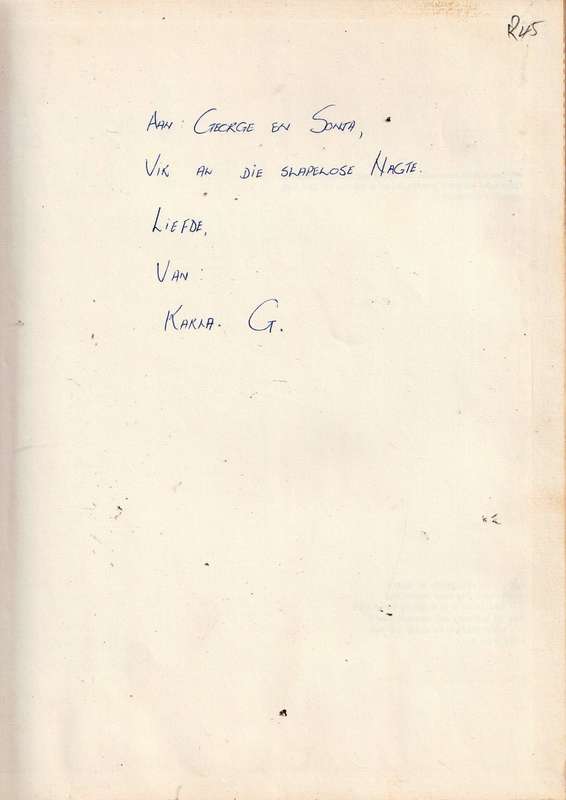 R45
Aan: George en Sonja,
Vir al die slapelose Nagte.
Liefde,
Van:
Karla. G.